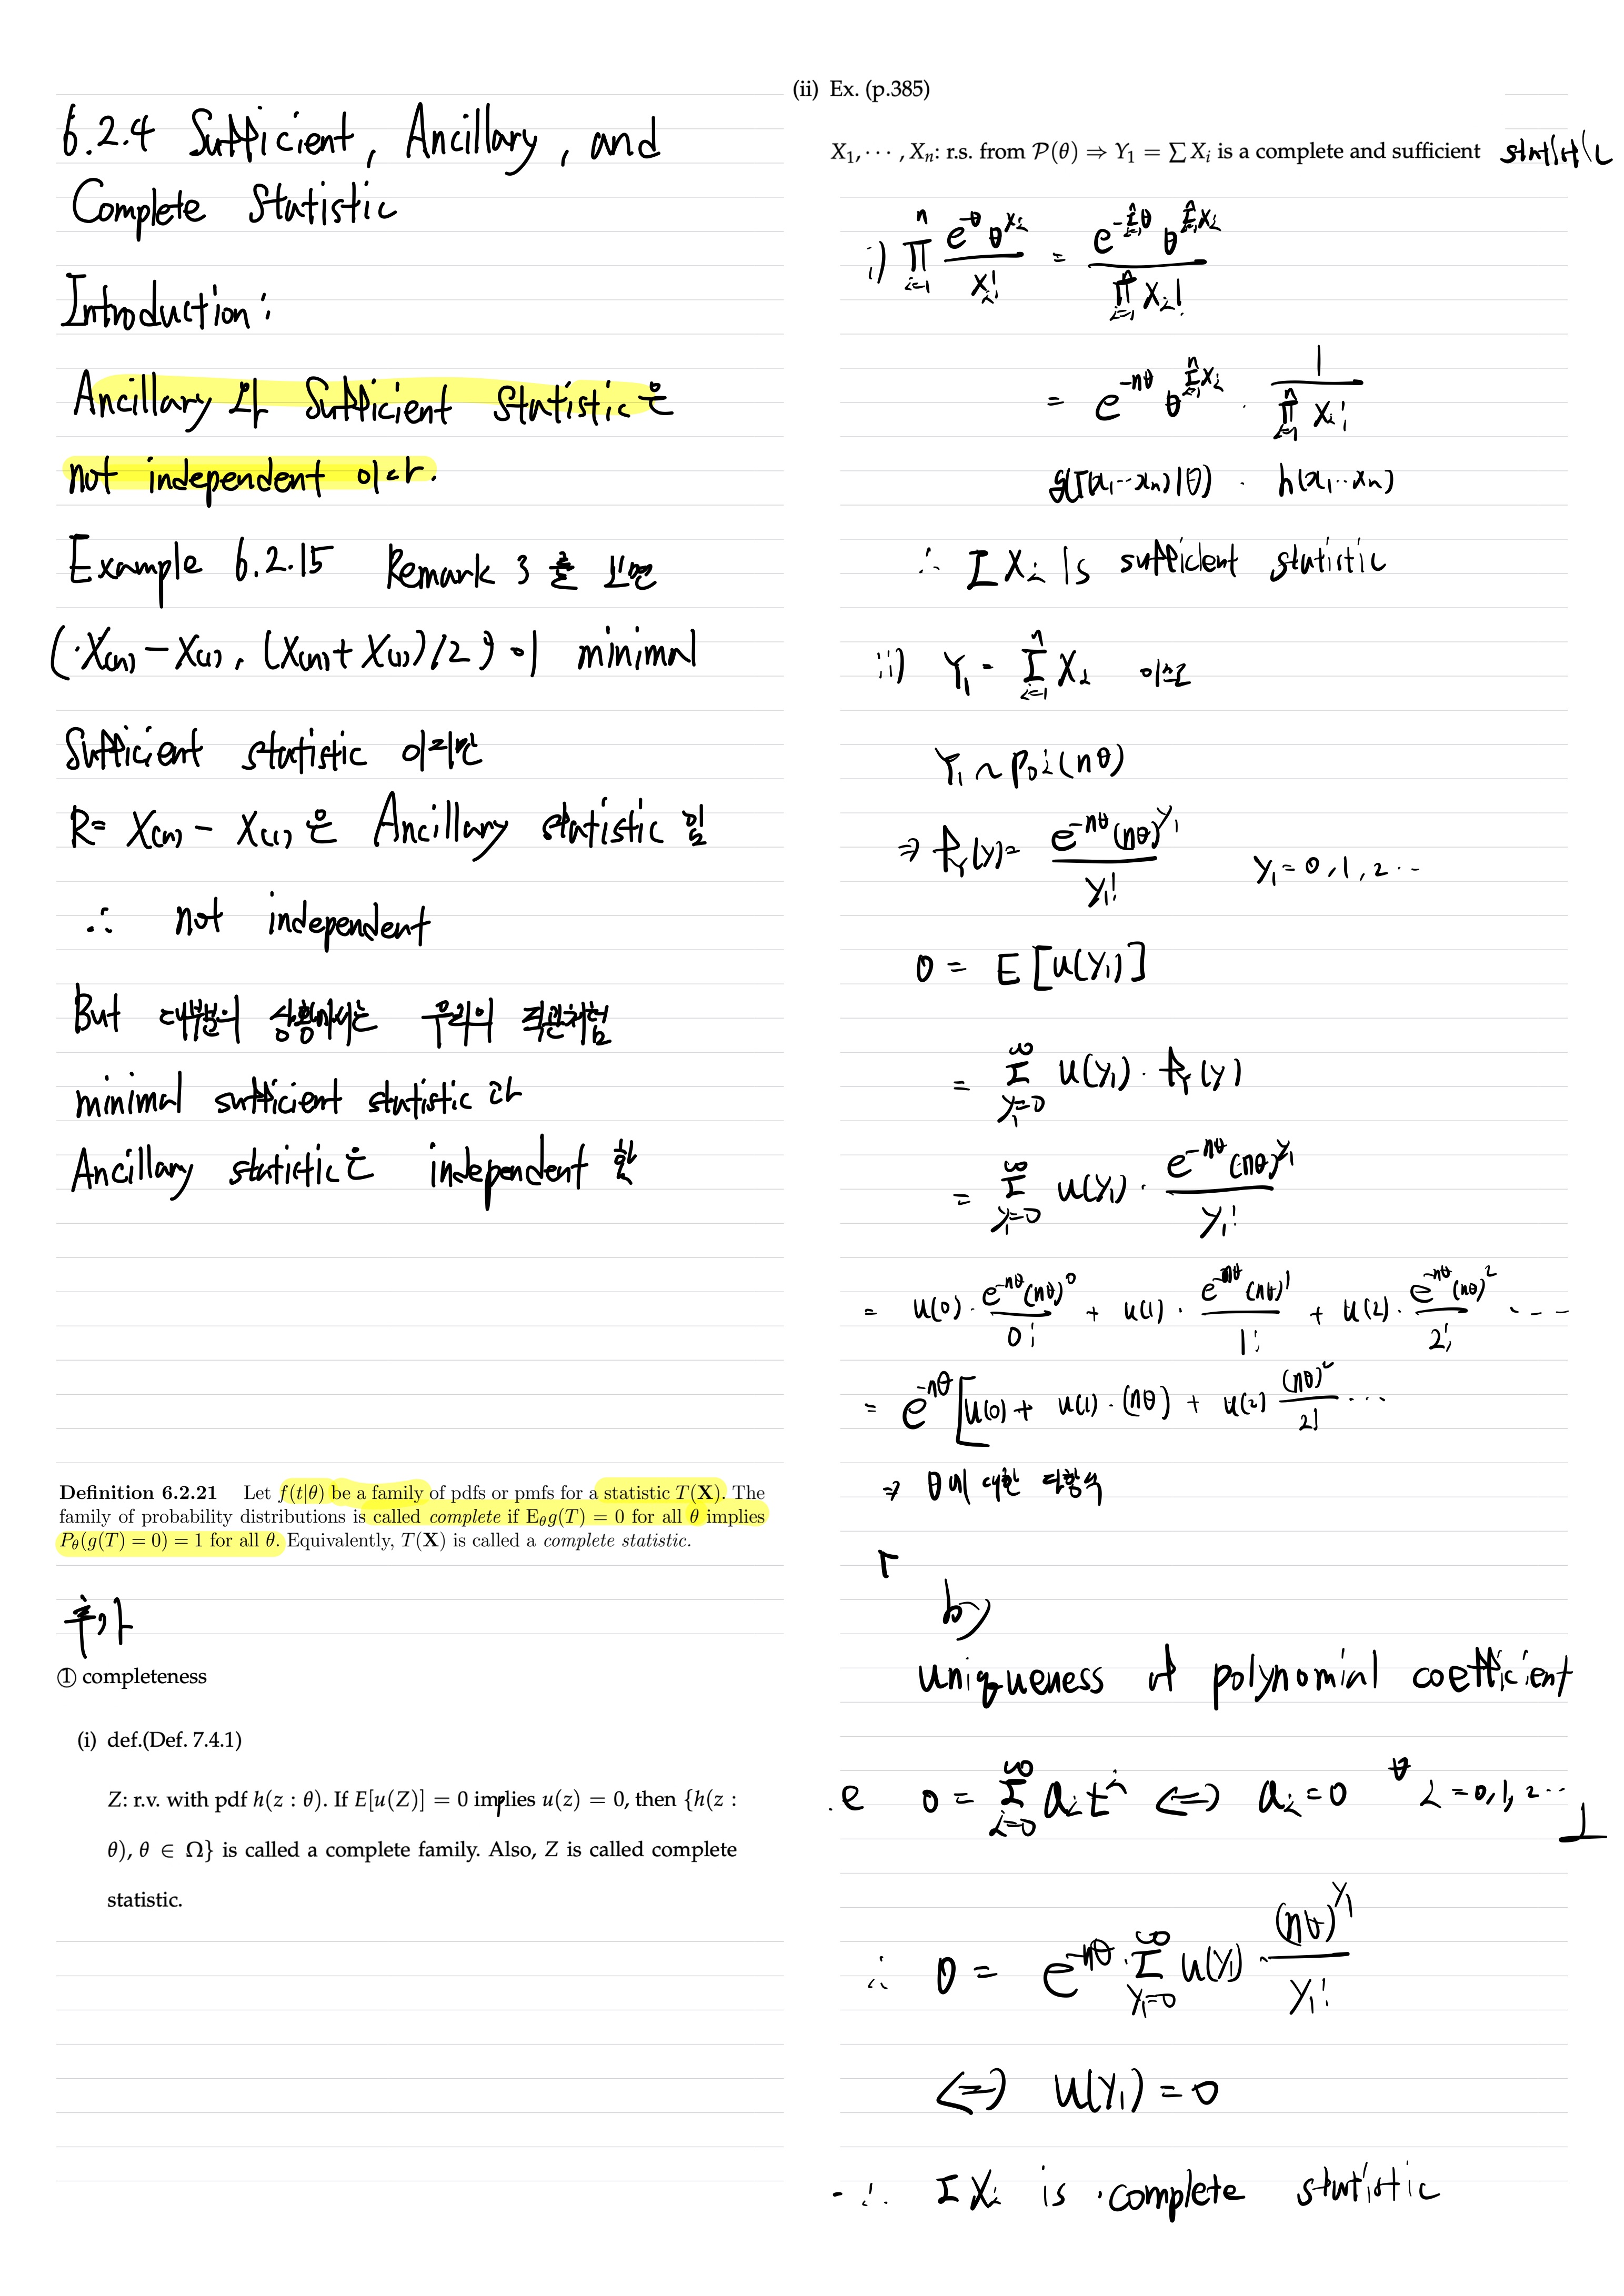 6.2.4 Sufficient, Ancillary, and
Complete Statistic
Introduction:
Ancillary 와 Sufficient Statistic은
not independent 이다.
Example 6.2.15 Remark 3 을 보면
(X(n) − X(1), (X(n) + X(1))/2) 이 minimal
Sufficient statistic 이지만
R = X(n) − X(1) 은 Ancillary statistic 임
∴ not independent
But 대부분의 상황에서는 우리의 직관처럼
minimal sufficient statistic 과
Ancillary statistic은 independent 함
Definition 6.2.21 Let f(t|θ) be a family of pdfs or pmfs for a statistic T(X). The
family of probability distributions is called complete if Eθg(T) = 0 for all θ implies
Pθ(g(T) = 0) = 1 for all θ. Equivalently, T(X) is called a complete statistic.
추가
① completeness
(i) def.(Def. 7.4.1)
Z: r.v. with pdf h(z : θ). If E[u(Z)] = 0 implies u(z) = 0, then {h(z :
θ), θ ∈ Ω} is called a complete family. Also, Z is called complete
statistic.
(ii) Ex. (p.385)
X₁, ⋯ , Xₙ: r.s. from P(θ) ⇒ Y₁ = ∑ Xᵢ is a complete and sufficient statistic
i) ∏_{i=1}^{n} e^{-θ} θ^{Xᵢ} / Xᵢ! = e^{-∑_{i=1}^{n} θ} θ^{∑_{i=1}^{n} Xᵢ} / ∏_{i=1}^{n} Xᵢ!
= e^{-nθ} θ^{∑_{i=1}^{n} Xᵢ} · 1 / ∏_{i=1}^{n} Xᵢ!
g(T(x₁⋯xₙ)|θ) · h(x₁⋯xₙ)
∴ ∑Xᵢ is sufficient statistic
ii) Y₁ = ∑_{i=1}^{n} Xᵢ 이므로
Y₁ ~ Poi(nθ)
⇒ f_Y(y) = e^{-nθ} (nθ)^{y₁} / y₁! y₁ = 0, 1, 2 ⋯
0 = E[u(Y₁)]
= ∑_{y₁=0}^{∞} u(y₁) · f_Y(y)
= ∑_{y₁=0}^{∞} u(y₁) · e^{-nθ} (nθ)^{y₁} / y₁!
= u(0) · e^{-nθ} (nθ)^0 / 0! + u(1) · e^{-nθ} (nθ)^1 / 1! + u(2) · e^{-nθ} (nθ)^2 / 2! ⋯
= e^{-nθ} [u(0) + u(1) · (nθ) + u(2) (nθ)^2 / 2! ⋯
⇒ θ에 대한 다항식
by
uniqueness of polynomial coefficient
.e 0 = ∑_{i=0}^{∞} aᵢ tⁱ ⇔ aᵢ = 0 ∀ i = 0, 1, 2 ⋯
∴ 0 = e^{-nθ} · ∑_{y₁=0}^{∞} u(y₁) · (nθ)^{y₁} / y₁!
⇔ u(y₁) = 0
∴ ∑Xᵢ is complete statistic